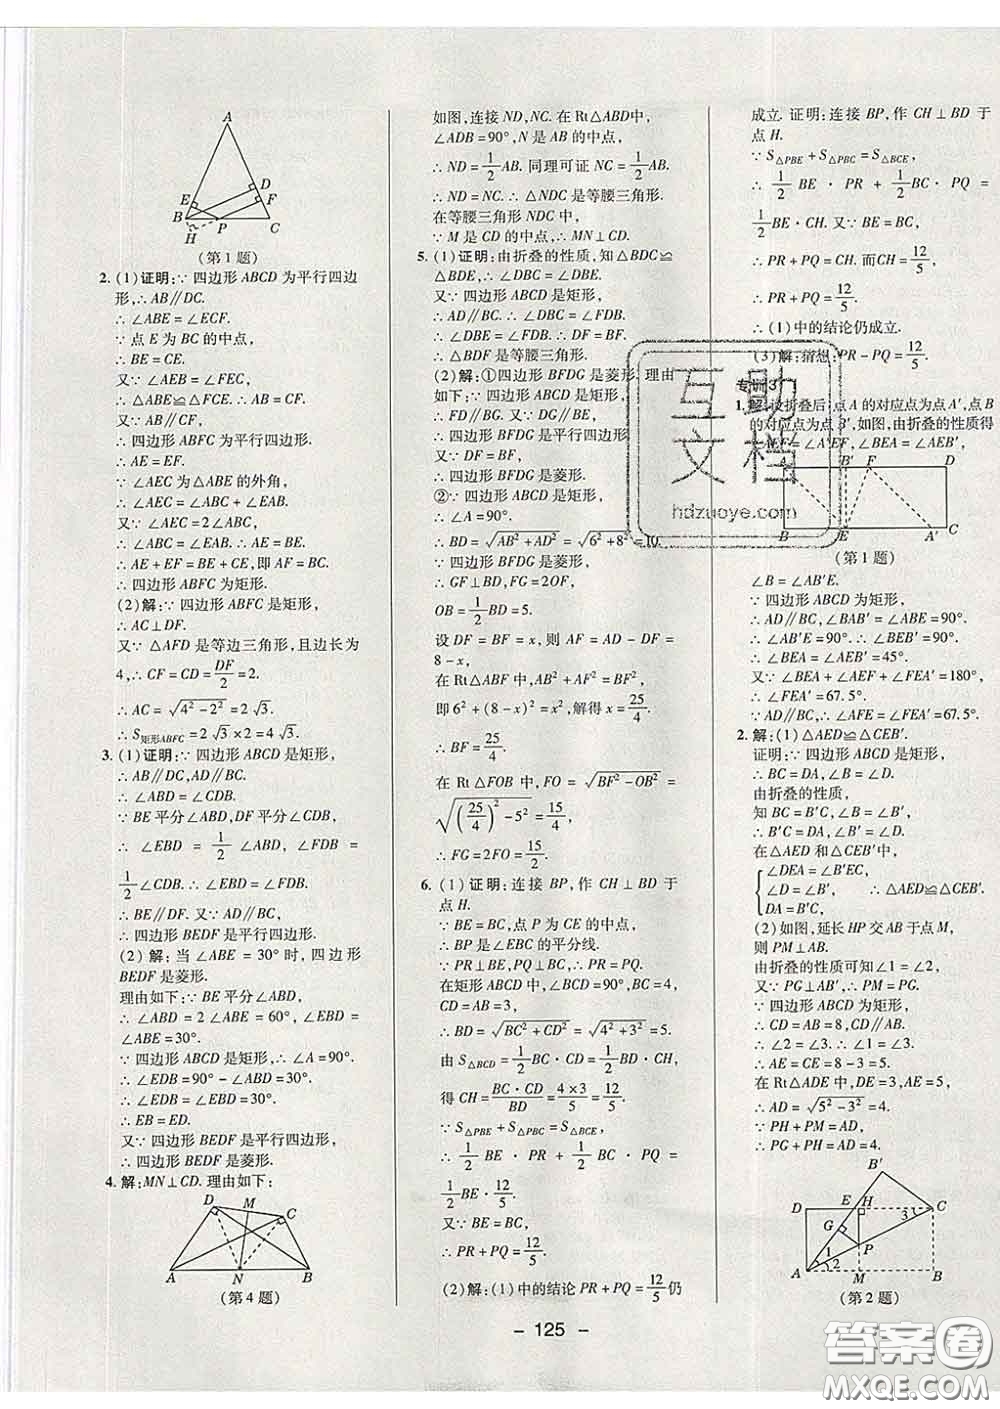 A
D
E
F
B
H
P
C
(第1题)
2. (1)证明:∵四边形ABCD为平行四边
形,∴AB∥DC.
∴∠ABE=∠ECF.
∵点E为BC的中点,
∴BE=CE.
又∵∠AEB=∠FEC,
∴△ABE≌△FCE. ∴AB=CF.
∴四边形ABFC为平行四边形.
∴AE=EF.
∵∠AEC为△ABE的外角,
∴∠AEC=∠ABC+∠EAB.
又∵∠AEC=2∠ABC,
∴∠ABC=∠EAB. ∴AE=BE.
∴AE+EF=BE+CE,即AF=BC.
∴四边形ABFC为矩形.
(2)解:∵四边形ABFC是矩形,
∴AC⊥DF.
又∵△AFD是等边三角形,且边长为
4,∴CF=CD=DF/2=2.
∴AC=√(4²-2²)=2√3.
∴S矩形ABFC=2√3×2=4√3.
3. (1)证明:∵四边形ABCD是矩形,
∴AB∥DC,AD∥BC.
∴∠ABD=∠CDB.
∵BE平分∠ABD,DF平分∠CDB,
∴∠EBD=1/2∠ABD,∠FDB=
1/2∠CDB. ∴∠EBD=∠FDB.
∴BE∥DF. 又∵AD∥BC,
∴四边形BEDF是平行四边形.
(2)解:当∠ABE=30°时,四边形
BEDF是菱形.
理由如下:∵BE平分∠ABD,
∴∠ABD=2∠ABE=60°,∠EBD=
∠ABE=30°.
∵四边形ABCD是矩形,∴∠A=90°.
∴∠EDB=90°-∠ABD=30°.
∴∠EDB=∠EBD=30°.
∴EB=ED.
又∵四边形BEDF是平行四边形,
∴四边形BEDF是菱形.
4. 解:MN⊥CD. 理由如下:
D
M
C
A
N
B
(第4题)
如图,连接ND,NC. 在Rt△ABD中,
∠ADB=90°,N是AB的中点,
∴ND=1/2AB. 同理可证NC=1/2AB.
∴ND=NC. ∴△NDC是等腰三角形.
在等腰三角形NDC中,
∵M是CD的中点,∴MN⊥CD.
5. (1)证明:由折叠的性质,知△BDC≌
△BDE,∴∠DBC=∠DBE.
又∵四边形ABCD是矩形,
∴AD∥BC. ∴∠DBC=∠FDB.
∴∠DBE=∠FDB. ∴DF=BF.
∴△BDF是等腰三角形.
(2)解:①四边形BFDG是菱形. 理由
如下:∵四边形ABCD是矩形,
∴FD∥BG. 又∵DG∥BE,
∴四边形BFDG是平行四边形.
又∵DF=BF,
∴四边形BFDG是菱形.
②∵四边形ABCD是矩形,
∴∠A=90°.
∴BD=√(AB²+AD²)=√(6²+8²)=10.
∵四边形BFDG是菱形,
∴GF⊥BD,FG=2OF,
OB=1/2BD=5.
设DF=BF=x,则AF=AD-DF=
8-x,
在Rt△ABF中,AB²+AF²=BF²,
即6²+(8-x)²=x²,解得x=25/4,
∴BF=25/4.
在Rt△FOB中,FO=√(BF²-OB²)=
√((25/4)²-5²)=15/4,
∴FG=2FO=15/2.
6. (1)证明:连接BP,作CH⊥BD于
点H.
∵BE=BC,点P为CE的中点,
∴BP是∠EBC的平分线.
∵PR⊥BE,PQ⊥BC,∴PR=PQ.
在矩形ABCD中,∠BCD=90°,BC=4,
CD=AB=3,
∴BD=√(BC²+CD²)=√(4²+3²)=5.
由S△BCD=1/2BC·CD=1/2BD·CH,
得CH=BC·CD/BD=4×3/5=12/5.
∵S△PBE+S△PBC=S△BCE,
∴1/2BE·PR+1/2BC·PQ=
1/2BE·12/5.
又∵BE=BC,
∴PR+PQ=12/5.
(2)解:(1)中的结论PR+PQ=12/5仍
成立. 证明:连接BP,作CH⊥BD于
点H.
∵S△PBE+S△PBC=S△BCE,
∴1/2BE·PR+1/2BC·PQ=
1/2BE·CH. 又∵BE=BC,
∴PR+PQ=CH. 而CH=12/5,
∴PR+PQ=12/5.
∴(1)中的结论仍成立.
(3)解:猜想:PR-PQ=12/5.
专训3
1. 解:设折叠后,点A的对应点为点A′,点B
的对应点为点B′,如图,由折叠的性质得
∠AEF=∠A′EF,∠BEA=∠AEB′,
A
B′
F
D
B
E
A′
C
(第1题)
∠B=∠AB′E.
∵四边形ABCD为矩形,
∴AD∥BC,∠BAB′=∠ABE=90°.
∴∠AB′E=90°. ∴∠BEB′=90°.
∴∠BEA=∠AEB′=45°.
又∵∠BEA+∠AEF+∠FEA′=180°,
∴∠FEA′=67.5°.
∵AD∥BC,∴∠AFE=∠FEA′=67.5°.
2. 解:(1)△AED≌△CEB′.
证明:∵四边形ABCD为矩形,
∴BC=DA,∠B=∠D.
由折叠的性质,
知BC=B′C,∠B=∠B′,
∴B′C=DA,∠B′=∠D.
在△AED和△CEB′中,
∠DEA=∠B′EC,
∠D=∠B′, ∴△AED≌△CEB′.
DA=B′C,
(2)如图,延长HP交AB于点M,
则PM⊥AB.
由折叠的性质可知∠1=∠2,
又∵PG⊥AB′,∴PM=PG.
∵四边形ABCD为矩形,
∴CD=AB=8,CD∥AB.
∴∠2=∠3. ∴∠1=∠3.
∴AE=CE=8-3=5.
在Rt△ADE中,DE=3,AE=5,
∴AD=√(5²-3²)=4.
∵PH+PM=AD,
∴PG+PH=AD=4.
B′
D
E
H
C
3
G
P
1
2
A
M
B
(第2题)
- 125 -
互助文档
hdzuoye.com
答案圈
MXQE.COM